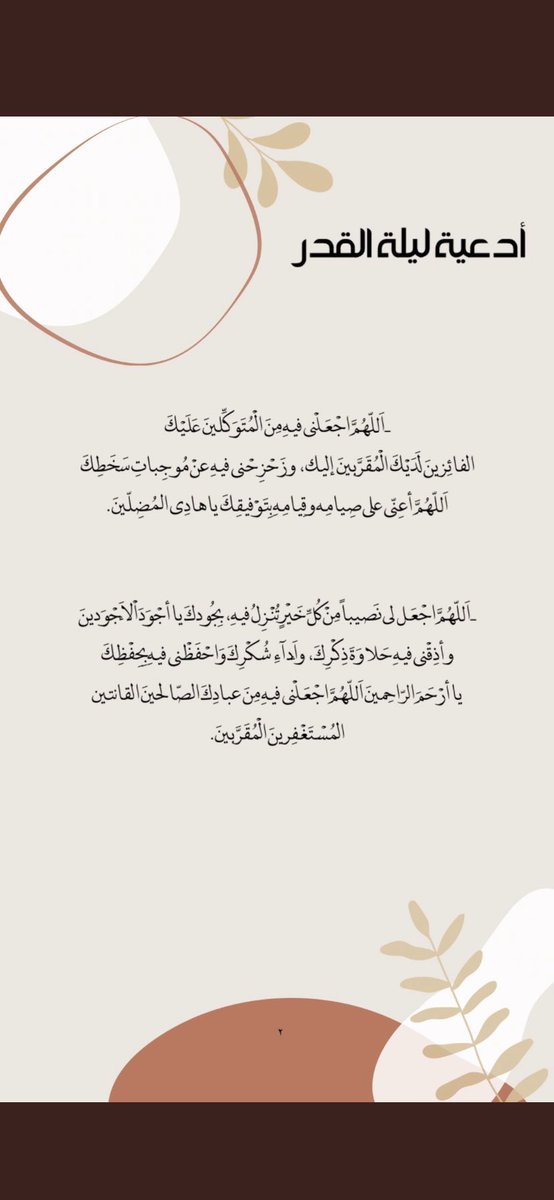 أدعية ليلة القدر
ـ اَللّهُمَّ اجْعَلْنى فيهِ مِنَ الْمُتَوَكِّلينَ عَلَيْكَ
الفائِزينَ لَدَيْكَ الْمُقَرَّبينَ إليك، وزَحْزِحْنى فيهِ عنْ مُوجِباتِ سَخَطِكَ
اَللّهُمَّ أعِنّى على صِيامِه وقِيامِهِ بِتَوْفيقِكَ يا هادِى المُضِلّينَ.
ـ اَللّهُمَّ اجْعَل لى نَصيباً مِنْ كُلِّ خَيْرٍ تُنْزِلُ فيهِ، بِجُودكَ يا أجْوَدَ اْلاَجْوَدينَ
وأذِقْنى فيهِ حَلاوَةَ ذِكْرِكَ، وأدآءِ شُكْرِكَ وَاحْفَظْنى فيهِ بِحِفْظِكَ
يا أرْحَمَ الرّاحِمينَ اَللّهُمَّ اجْعَلْنى فيهِ مِنَ عبادِكَ الصّالحينَ القانتين
المُسْتَغْفِرينَ الْمُقَرَّبينَ.
٢